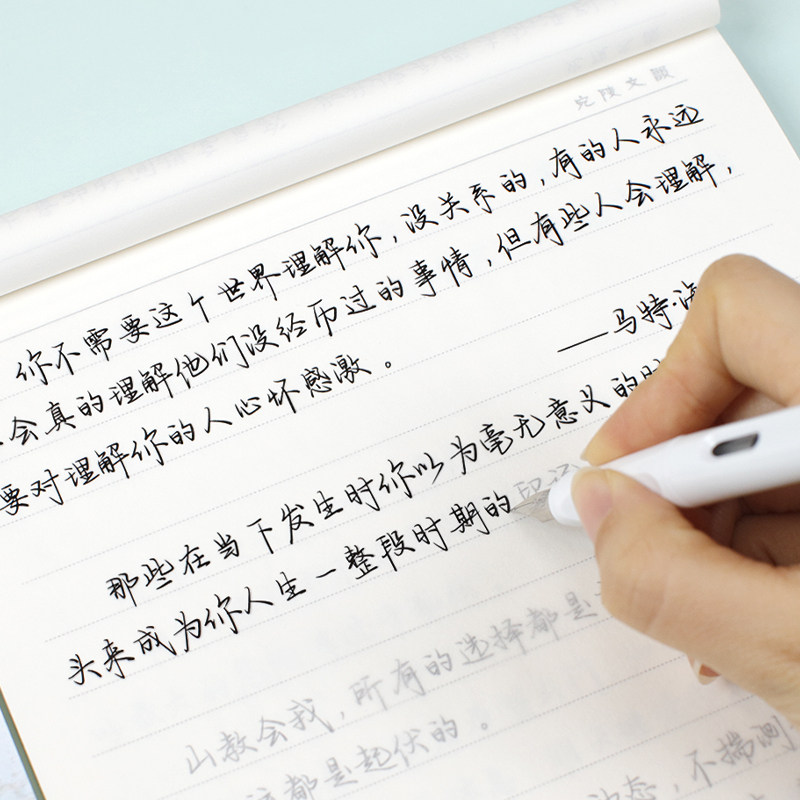 你不需要这个世界理解你,没关系的,有的人永远
会真的理解他们没经历过的事情,但有些人会理解,
要对理解你的人心怀感激。
——马特·海
那些在当下发生时你以为毫无意义的时
头来成为你人生一整段时期的印
山教会我,所有的选择都是
这都是起伏的。
动态,不揣测